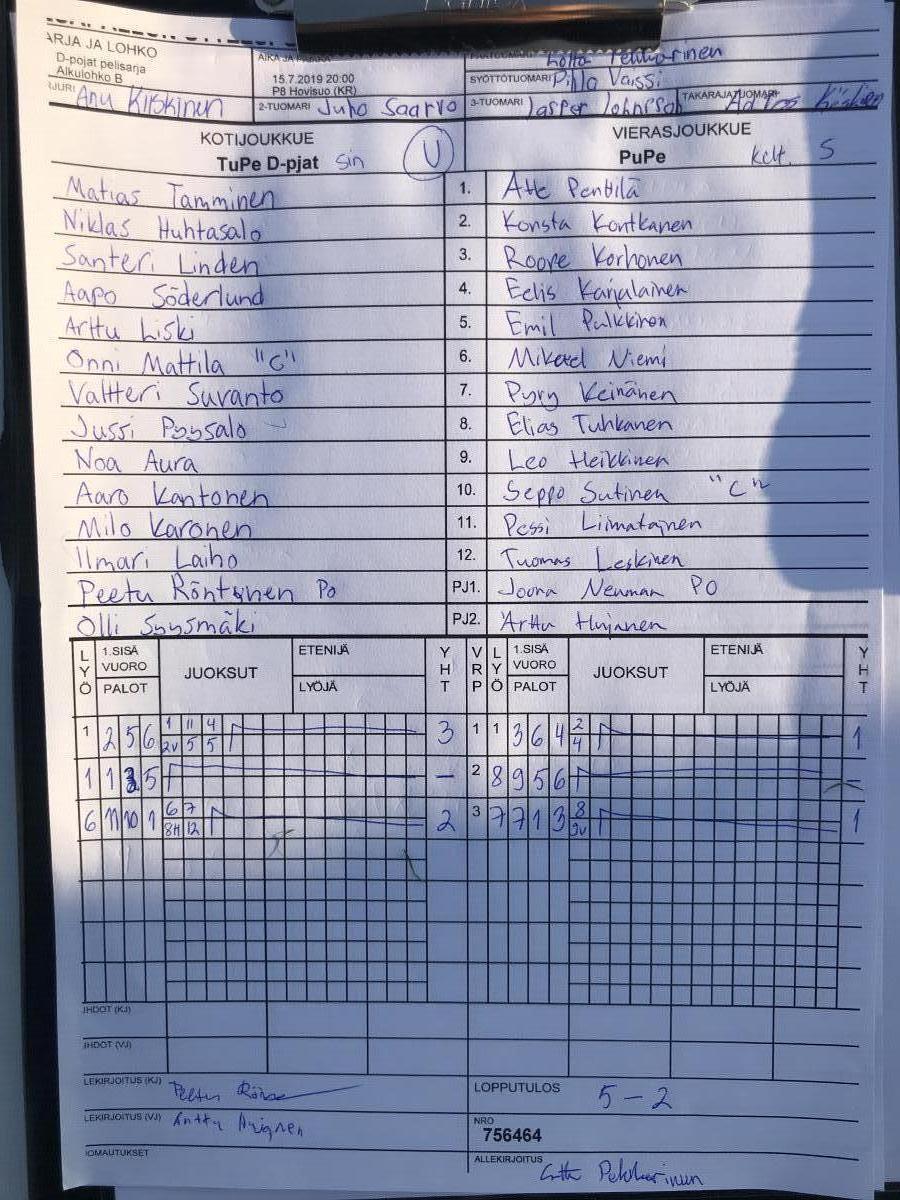 ARJA JA LOHKO
D-pojat pelisarja
Alkulohko B
Anu Kirskinen
15.7.2019 20:00
P8 Hovisuo (KR)
2-TUOMARI Juho Saarvo
SYÖTTÖTUOMARI Pihla Vaissi
3-TUOMARI Jasper Johnsson TAKARAJATUOMARI
KOTIJOUKKUE
TuPe D-pjat sin U
VIERASJOUKKUE
PuPe kelt. S
Matias Tamminen 1. Atte Penttilä
Niklas Huhtasalo 2. Konsta Kontkanen
Santeri Linden 3. Roope Korhonen
Aapo Söderlund 4. Eelis Karjalainen
Arttu Liski 5. Emil Pulkkinen
Onni Mattila "C" 6. Mikael Niemi
Valtteri Suvanto 7. Pyry Keinänen
Jussi Pöysalo 8. Elias Tuhkanen
Noa Aura 9. Leo Heikkinen
Aaro Kantonen 10. Seppo Sutinen "C"
Milo Karonen 11. Pessi Liimatainen
Ilmari Laiho 12. Tuomas Leskinen
Peetu Röntynen Po PJ1. Joona Neuman PO
Olli Syysmäki PJ2. Arttu Hujanen
LYÖ 1.SISÄ VUORO PALOT JUOKSUT ETENIJÄ LYÖJÄ YHT VRP LYÖ 1.SISÄ VUORO PALOT JUOKSUT ETENIJÄ LYÖJÄ YHT
1 2 5 6 1 11 4 3 1 1 3 6 4 2 1
2v 5 5 4
1 1 3 5 – 2 8 9 5 6 –
6 11 10 1 6 7 2 3 7 7 1 3 8 1
8H 12 9v
JHDOT (KJ)
JHDOT (VJ)
LEKIRJOITUS (KJ)
LOPPUTULOS 5 – 2
LEKIRJOITUS (VJ)
NRO
756464
IOMAUTUKSET
ALLEKIRJOITUS